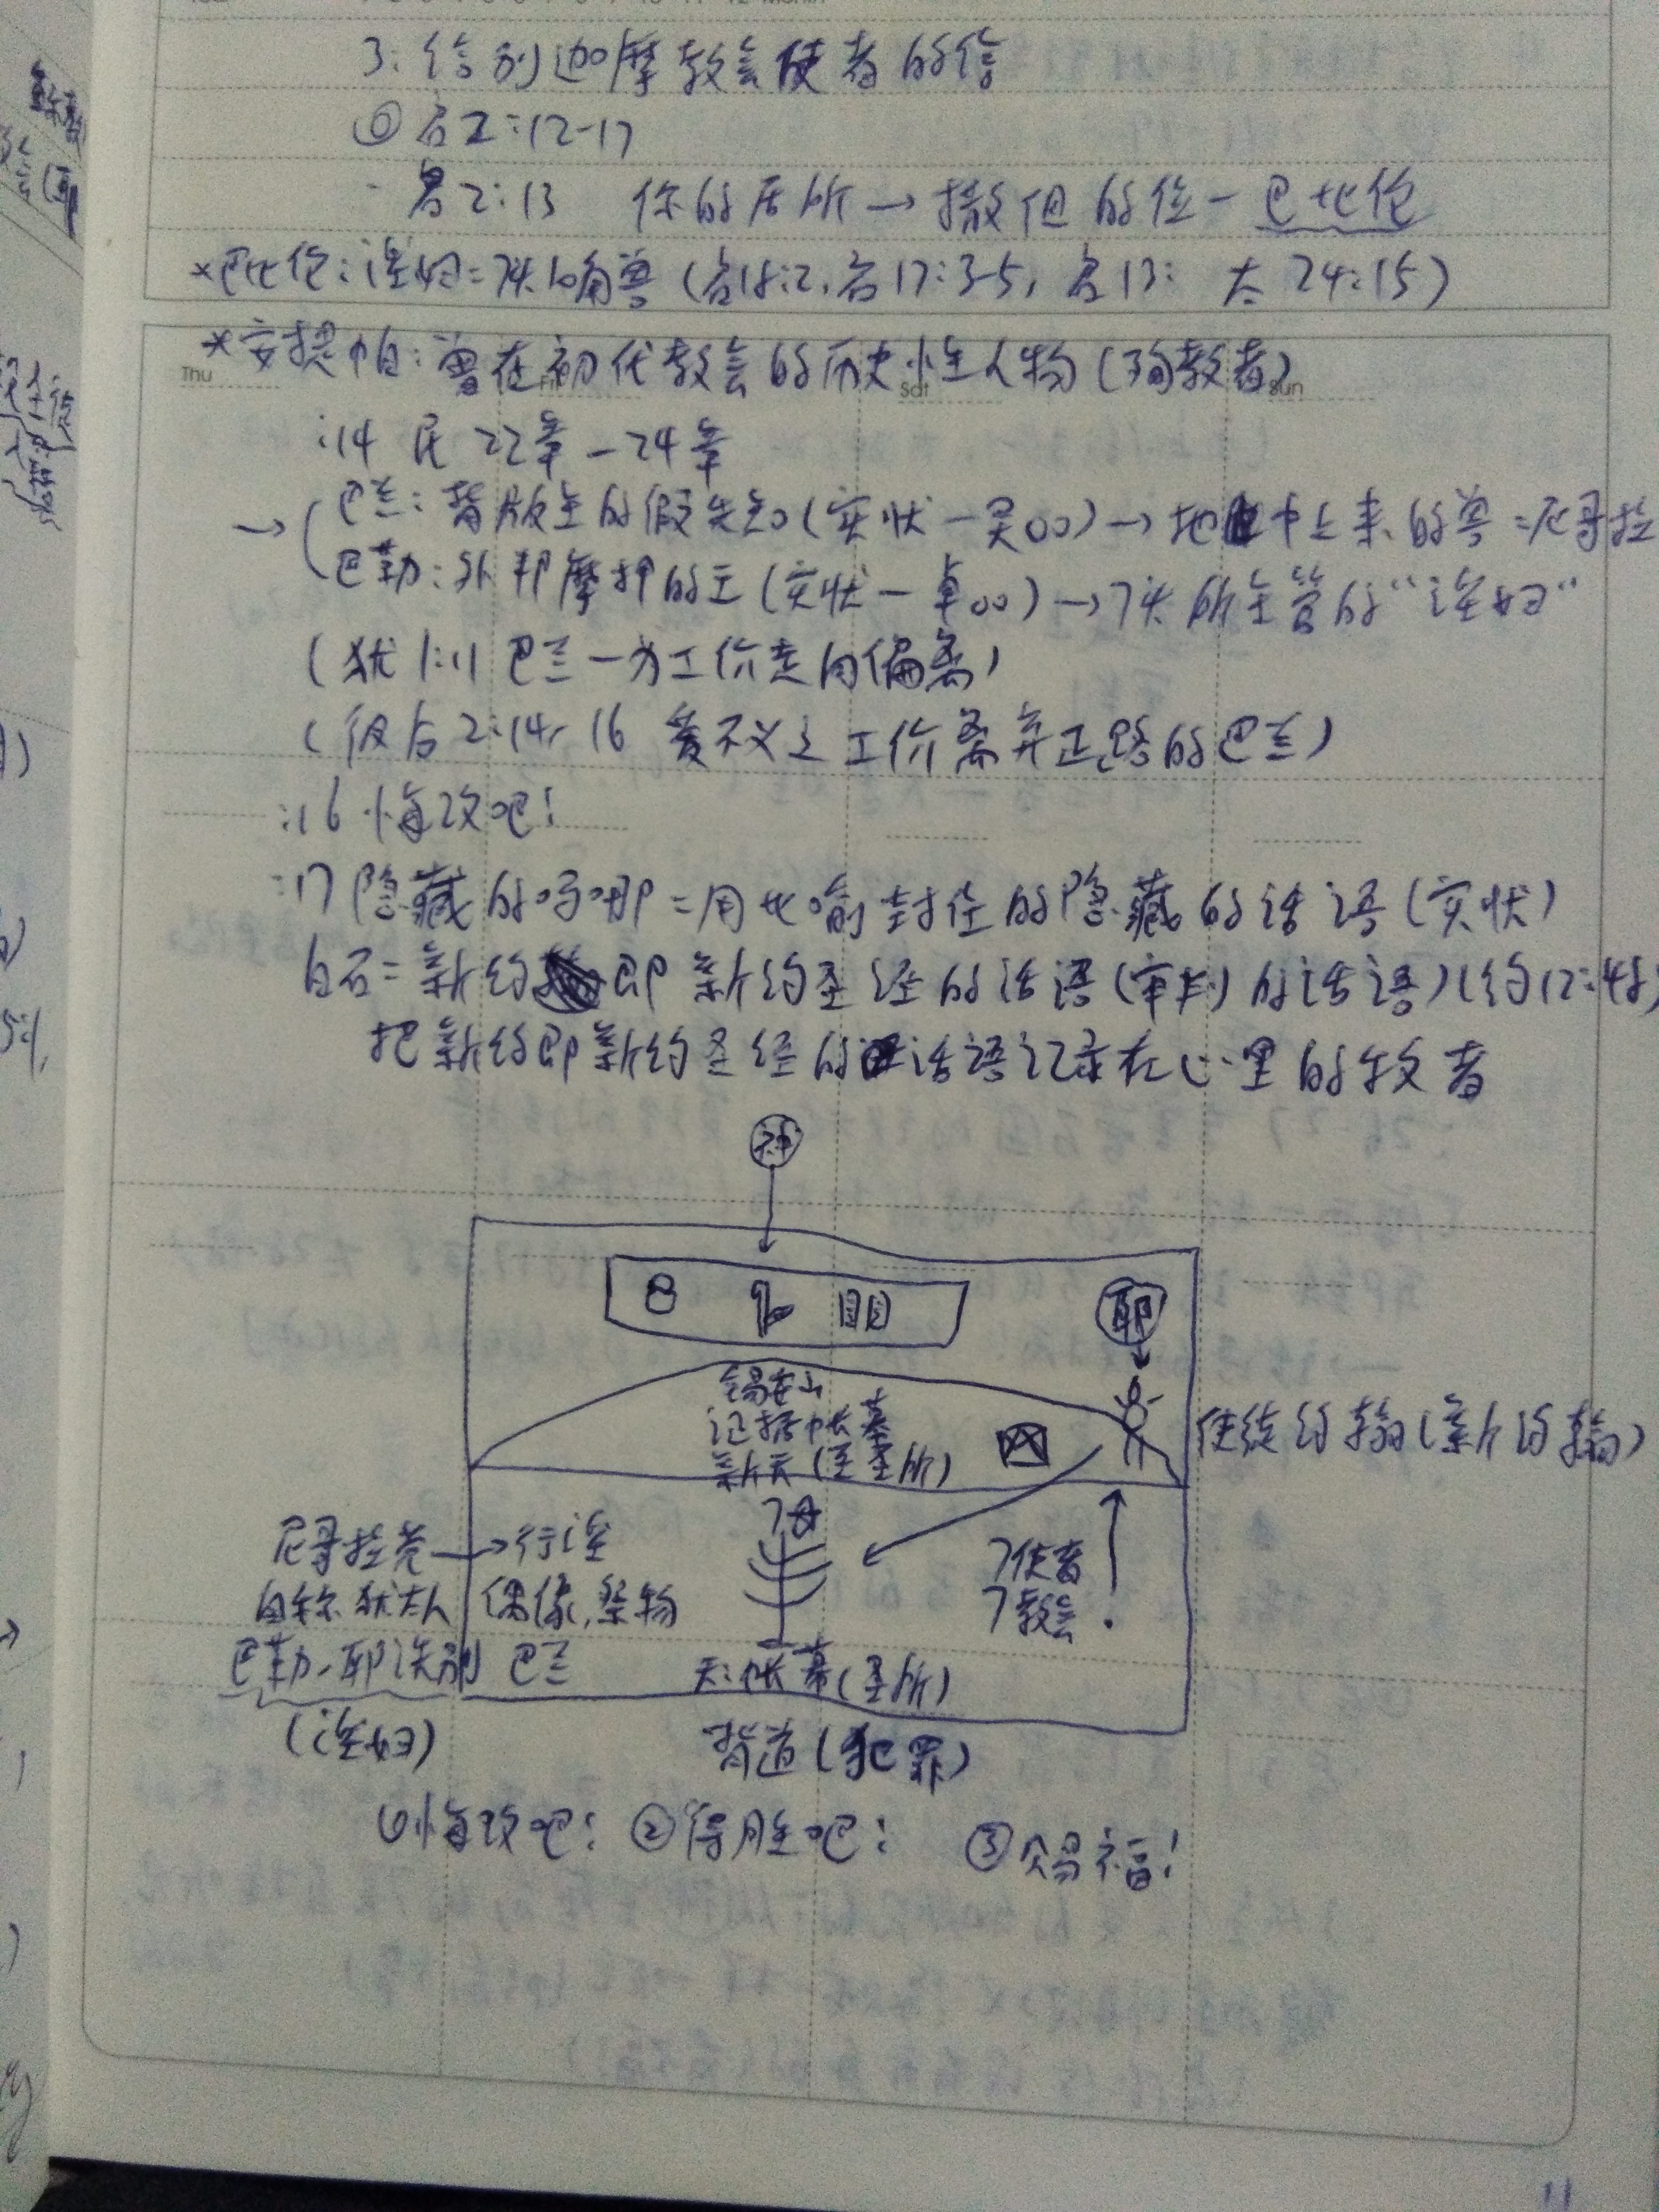 3. 给别迦摩教会使者的信
◎启2:12-17
- 启2:13 你的居所→撒但的位-巴比伦
*巴比伦:淫妇=7头10角兽(启18:2,启17:3-5,启13: 太24:15)
*安提帕:曾在初代教会的历史性人物(殉教者)
Thu Sat Sun
:14 民22章-24章
→(巴兰:背叛主的假先知(实状-吴00)→地中上来的兽=尼哥拉
巴勒:外邦摩押的王(实状-卓00)→7头所主管的"淫妇"
(犹1:11 巴兰-为工价走向偏离)
(彼后2:14, 16 爱不义之工价离弃正路的巴兰)
:16 悔改吧!
:17 隐藏的吗哪=用比喻封住的隐藏的话语(实状)
白石=新约 即新约圣经的话语(审判的话语)(约12:48)
把新约即新约圣经的话语记录在心里的牧者
神
耶
锡安山
证据帐幕
新天(至圣所)
使徒约翰(新约翰)
7使者
7教会
尼哥拉党→行淫
自称犹太人 偶像,祭物
巴勒、耶洗别 巴兰
天:帐幕(圣所)
(淫妇)
背道(犯罪)
①悔改吧! ②得胜吧! ③赐福!
11